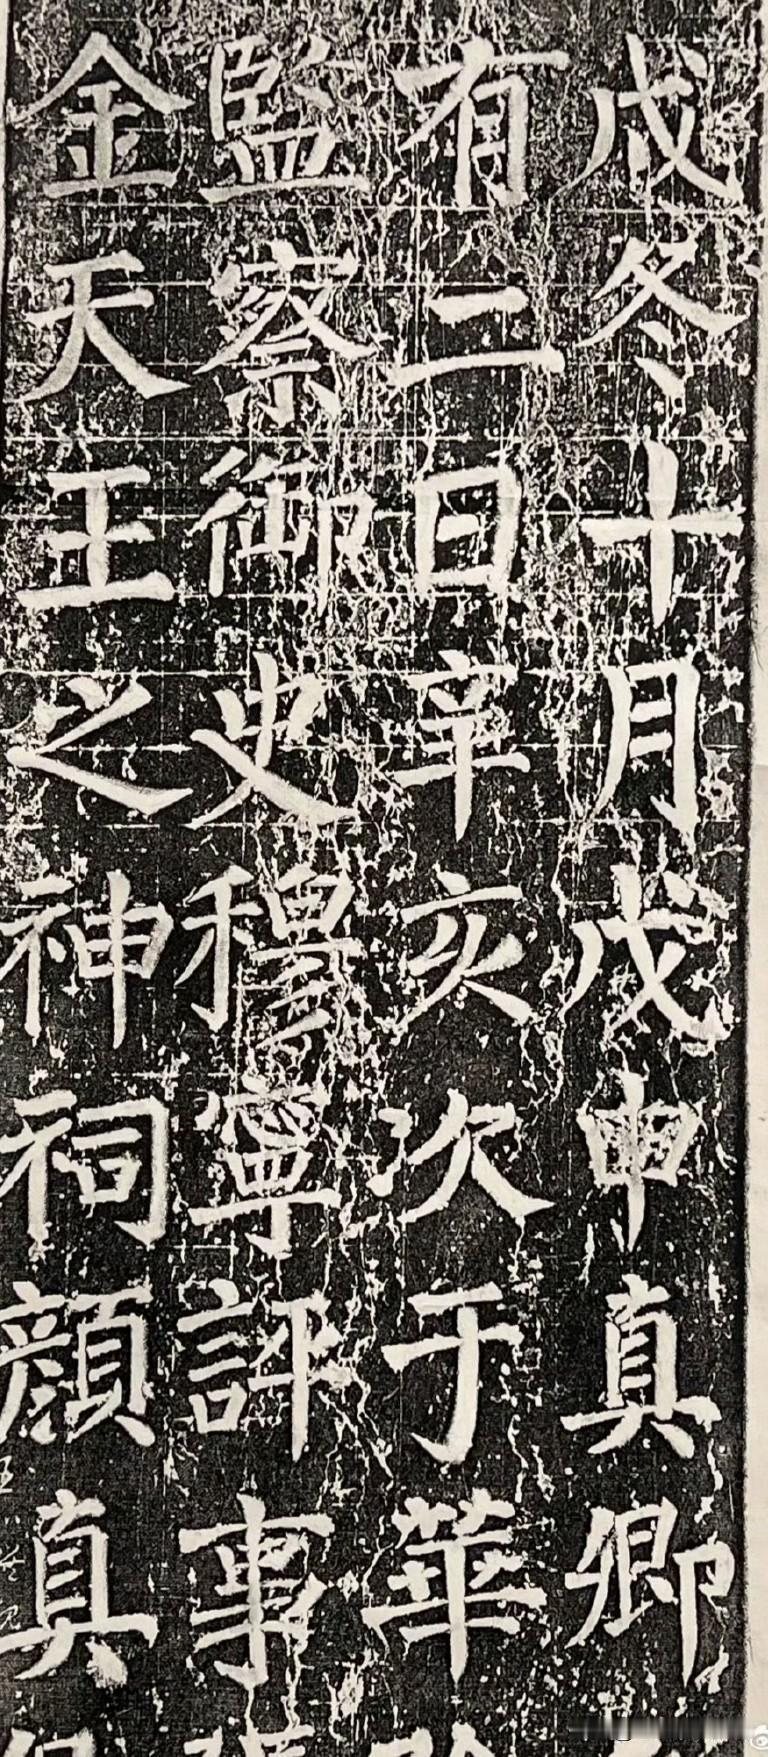 戌冬十月戊申真卿
有二日辛亥次于華
監察御史穆寧評事
金天王之神祠顏真